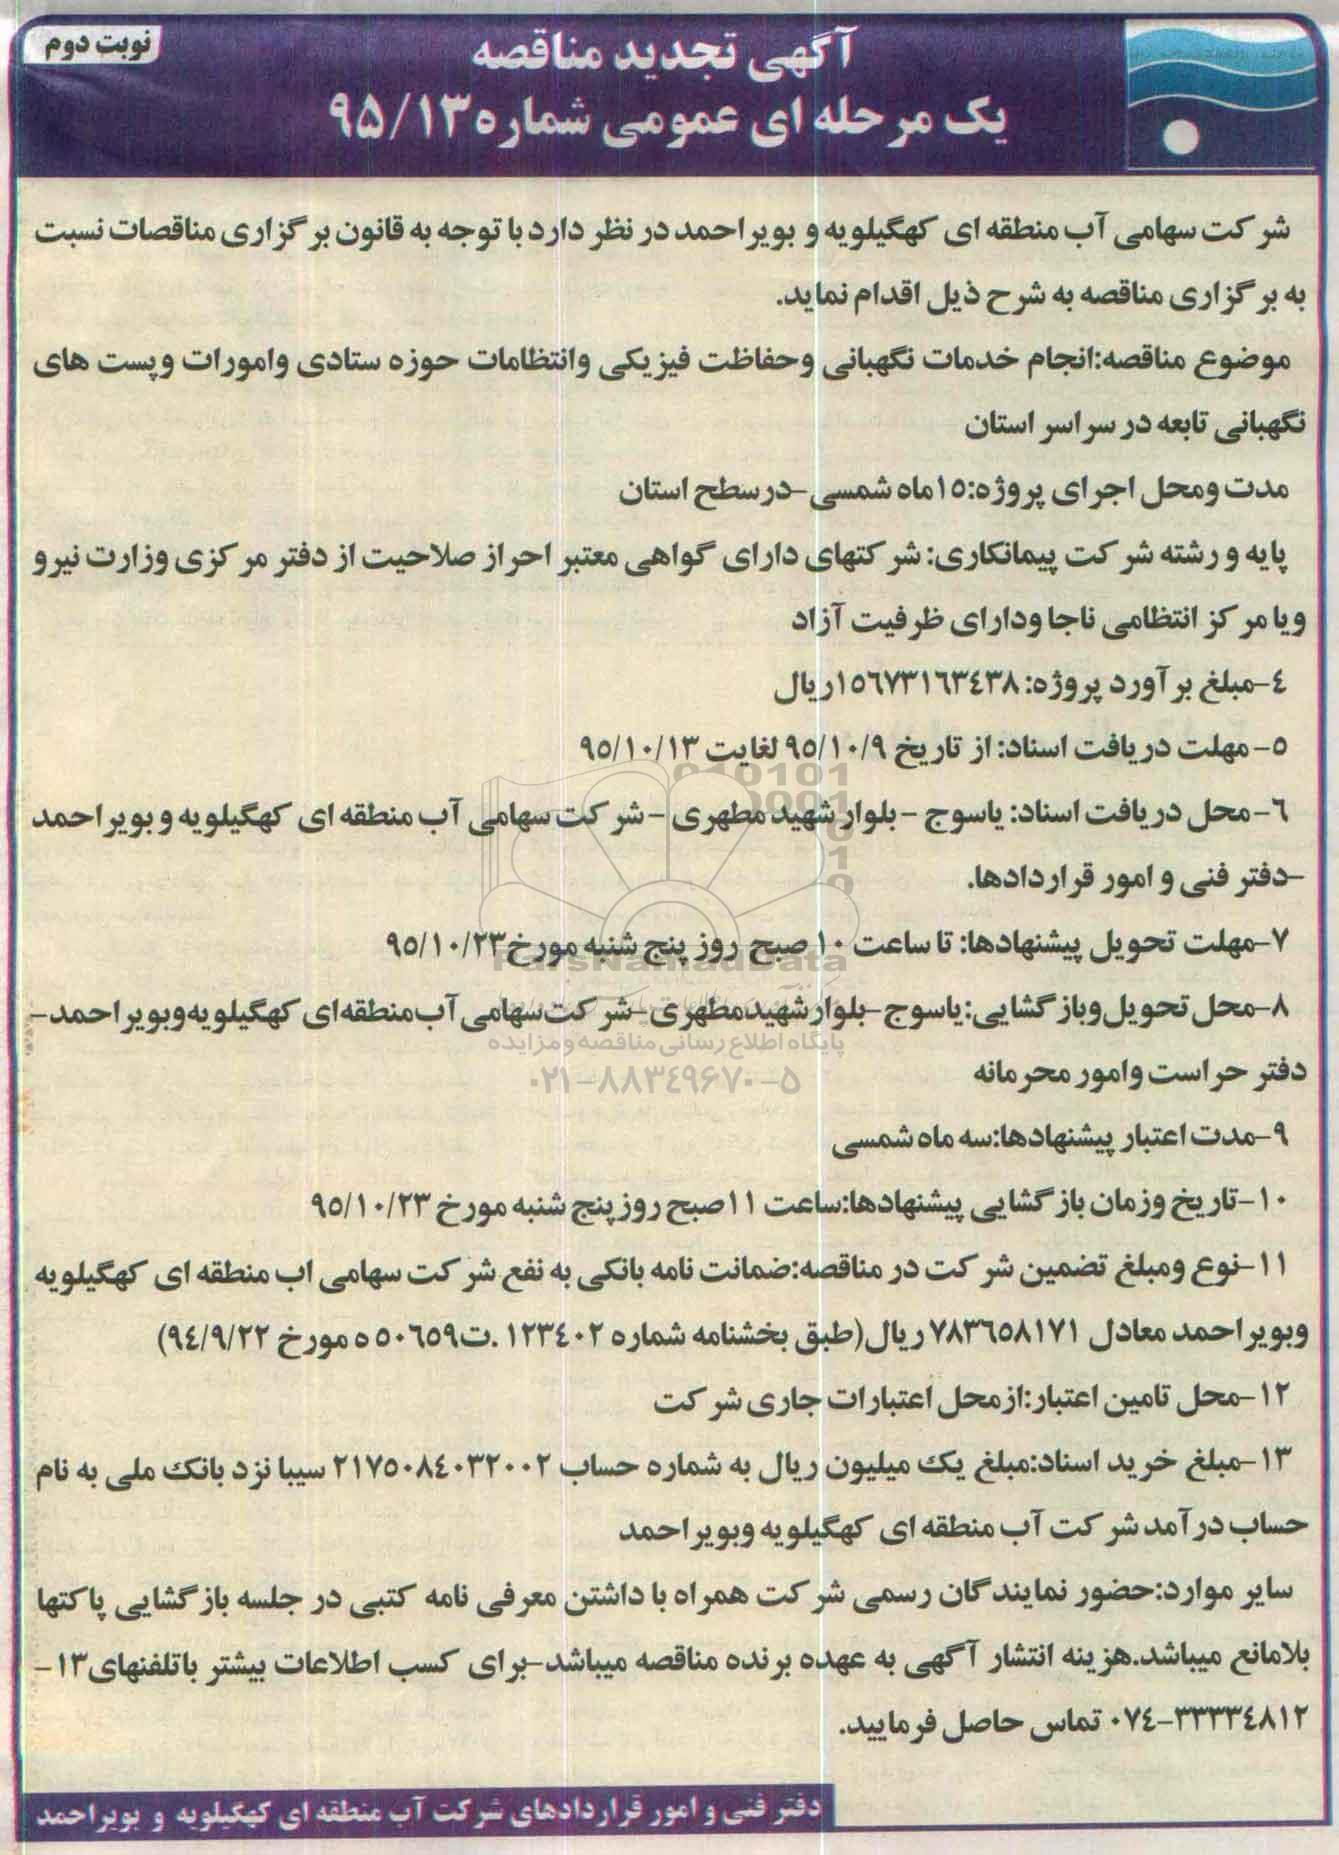 نوبت دوم
آگهی تجدید مناقصه
یک مرحله ای عمومی شماره ۹۵/۱۳
شرکت سهامی آب منطقه ای کهگیلویه و بویراحمد در نظر دارد با توجه به قانون برگزاری مناقصات نسبت
به برگزاری مناقصه به شرح ذیل اقدام نماید.
موضوع مناقصه:انجام خدمات نگهبانی وحفاظت فیزیکی وانتظامات حوزه ستادی وامورات وپست های
نگهبانی تابعه در سراسر استان
مدت ومحل اجرای پروژه:۱۵ماه شمسی-درسطح استان
پایه و رشته شرکت پیمانکاری: شرکتهای دارای گواهی معتبر احراز صلاحیت از دفتر مرکزی وزارت نیرو
ویا مرکز انتظامی ناجا ودارای ظرفیت آزاد
۴-مبلغ برآورد پروژه: ۱۵۶۷۳۱۶۳۴۳۸ریال
۵- مهلت دریافت اسناد: از تاریخ ۹۵/۱۰/۹ لغایت ۹۵/۱۰/۱۳
۶- محل دریافت اسناد: یاسوج - بلوار شهید مطهری - شرکت سهامی آب منطقه ای کهگیلویه و بویراحمد
-دفتر فنی و امور قراردادها.
۷-مهلت تحویل پیشنهادها: تا ساعت ۱۰ صبح روز پنج شنبه مورخ۹۵/۱۰/۲۳
ParsNamadData
۸-محل تحویل‌وبازگشایی:یاسوج-بلوارشهیدمطهری-شرکت‌سهامی آب‌منطقه‌ای کهگیلویه‌وبویراحمد-
پایگاه اطلاع رسانی مناقصه ومزایده
دفتر حراست وامور محرمانه
۰۲۱-۸۸۳۴۹۶۷۰-۵
۹-مدت اعتبار پیشنهادها:سه ماه شمسی
۱۰-تاریخ وزمان بازگشایی پیشنهادها:ساعت ۱۱صبح روزپنج شنبه مورخ ۹۵/۱۰/۲۳
۱۱-نوع ومبلغ تضمین شرکت در مناقصه:ضمانت نامه بانکی به نفع شرکت سهامی اب منطقه ای کهگیلویه
وبویراحمد معادل ۷۸۳۶۵۸۱۷۱ ریال(طبق بخشنامه شماره ۱۲۳۴۰۲ .ت۵۰۶۵۹ ه مورخ ۹۴/۹/۲۲)
۱۲-محل تامین اعتبار:ازمحل اعتبارات جاری شرکت
۱۳-مبلغ خرید اسناد:مبلغ یک میلیون ریال به شماره حساب ۲۱۷۵۰۸۴۰۳۲۰۰۲ سیبا نزد بانک ملی به نام
حساب درآمد شرکت آب منطقه ای کهگیلویه وبویراحمد
سایر موارد:حضور نمایندگان رسمی شرکت همراه با داشتن معرفی نامه کتبی در جلسه بازگشایی پاکتها
بلامانع میباشد.هزینه انتشار آگهی به عهده برنده مناقصه میباشد-برای کسب اطلاعات بیشتر باتلفنهای۱۳-
۰۷۴-۳۳۳۳۴۸۱۲ تماس حاصل فرمایید.
دفتر فنی و امور قراردادهای شرکت آب منطقه ای کهگیلویه و بویراحمد